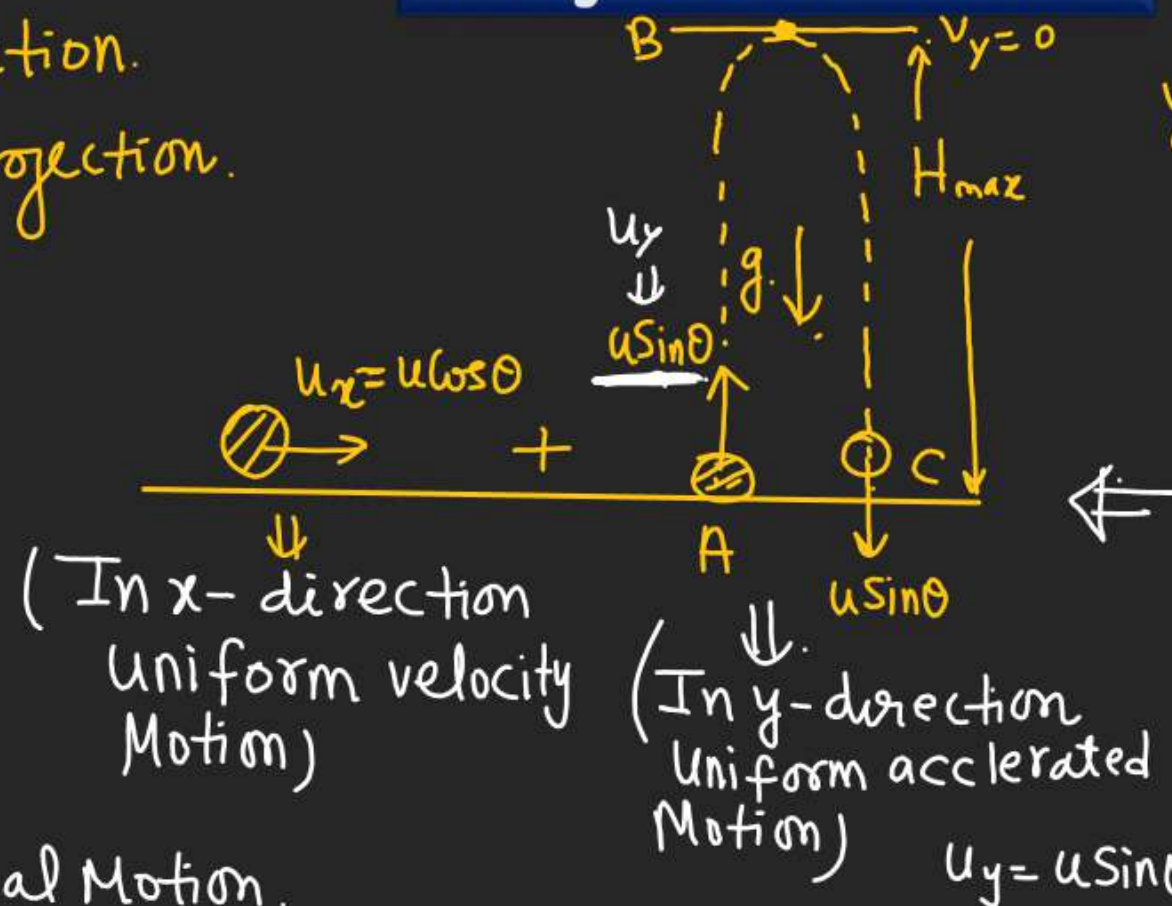 tion.
ojection.
B
Vy = 0
Hmax
uy
⇓
g. ↓
usinθ
ux = ucosθ
+
A
C
usinθ
⇓
(In x- direction
uniform velocity
Motion)
⇓.
(In y-direction
Uniform acclerated
Motion)
uy = usin
al Motion.